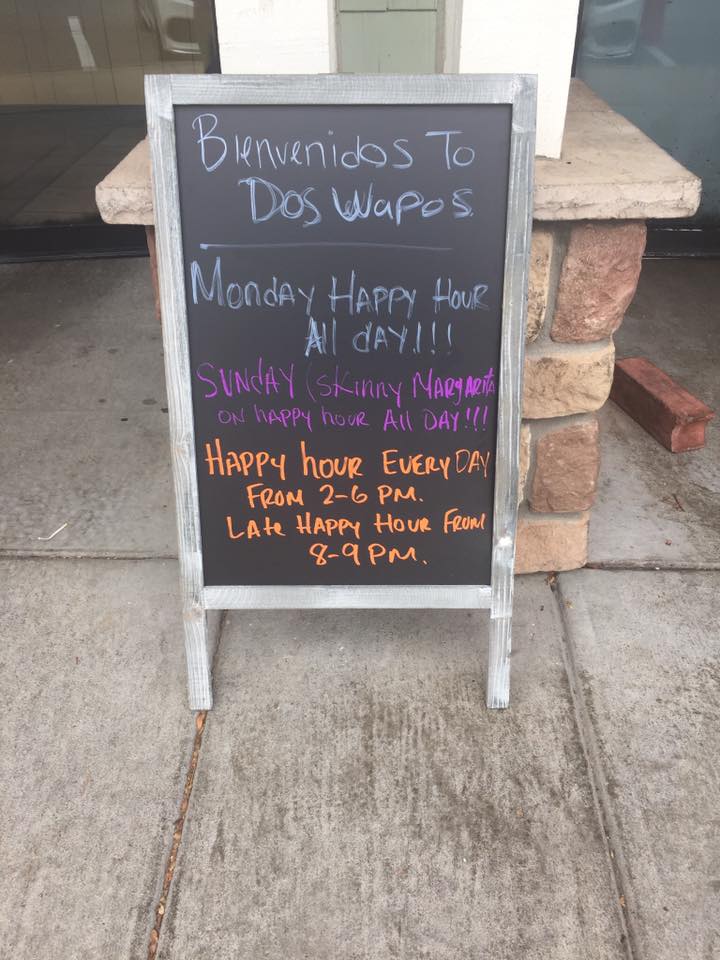 Bienvenidos To
Dos Wapos
Monday Happy Hour
All day!!!
Sunday (skinny Margarita
on happy hour All Day!!!
Happy hour Every Day
From 2-6 PM.
Late Happy Hour From
8-9 PM.